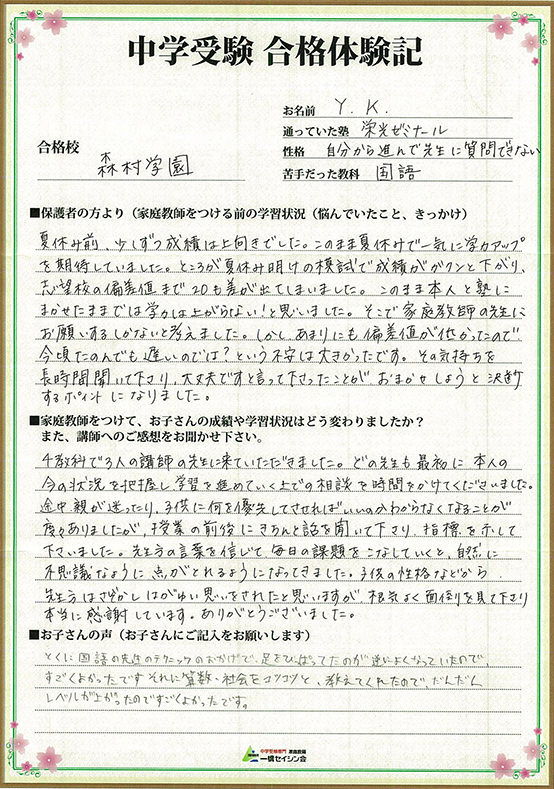 中学受験 合格体験記
お名前 Y. K.
通っていた塾 栄光ゼミナール
合格校 森村学園
性格 自分から進んで先生に質問できない
苦手だった教科 国語
■保護者の方より（家庭教師をつける前の学習状況（悩んでいたこと、きっかけ）
夏休み前、少しずつ成績は上向きでした。このまま夏休みで一気に学力アップ
を期待していました。ところが夏休み明けの模試で成績がガクンと下がり、
志望校の偏差値まで20も差が出てしまいました。このまま本人と塾に
まかせたままでは学力は上がらない！と思いました。そこで家庭教師の先生に
お願いするしかないと考えました。しかし、あまりにも偏差値が低かったので
今頃たのんでも遅いのでは？という不安は大きかったです。その気持ちを
長時間聞いて下さり、大丈夫ですと言って下さったことが、おまかせしようと決断
するポイントになりました。
■家庭教師をつけて、お子さんの成績や学習状況はどう変わりましたか？
また、講師へのご感想をお聞かせ下さい。
4教科で3人の講師の先生に来ていただきました。どの先生も最初に本人の
今の状況を把握し学習を進めていく上での相談を時間をかけてくださいました。
途中親が迷ったり、子供に何を優先してさせればいいのかわからなくなることが
度々ありましたが、授業の前後にきちんと話を聞いて下さり、指標を示して
下さいました。先生方の言葉を信じて毎日の課題をこなしていくと、自然に
不思議なように点がとれるようになってきました。子供の性格などから
先生方はさぞかしはがゆい思いをされたと思いますが、根気よく面倒を見て下さり
本当に感謝しています。ありがとうございました。
■お子さんの声（お子さんにご記入をお願いします）
とくに国語の先生のテクニックのおかげで、足をひっぱってたのが逆によくなっていたので、
すごくよかったです それに算数、社会をコツコツと、教えてくれたので、だんだん
レベルが上がったのですごくよかったです。
中学受験専門 家庭教師
一橋セイシン会